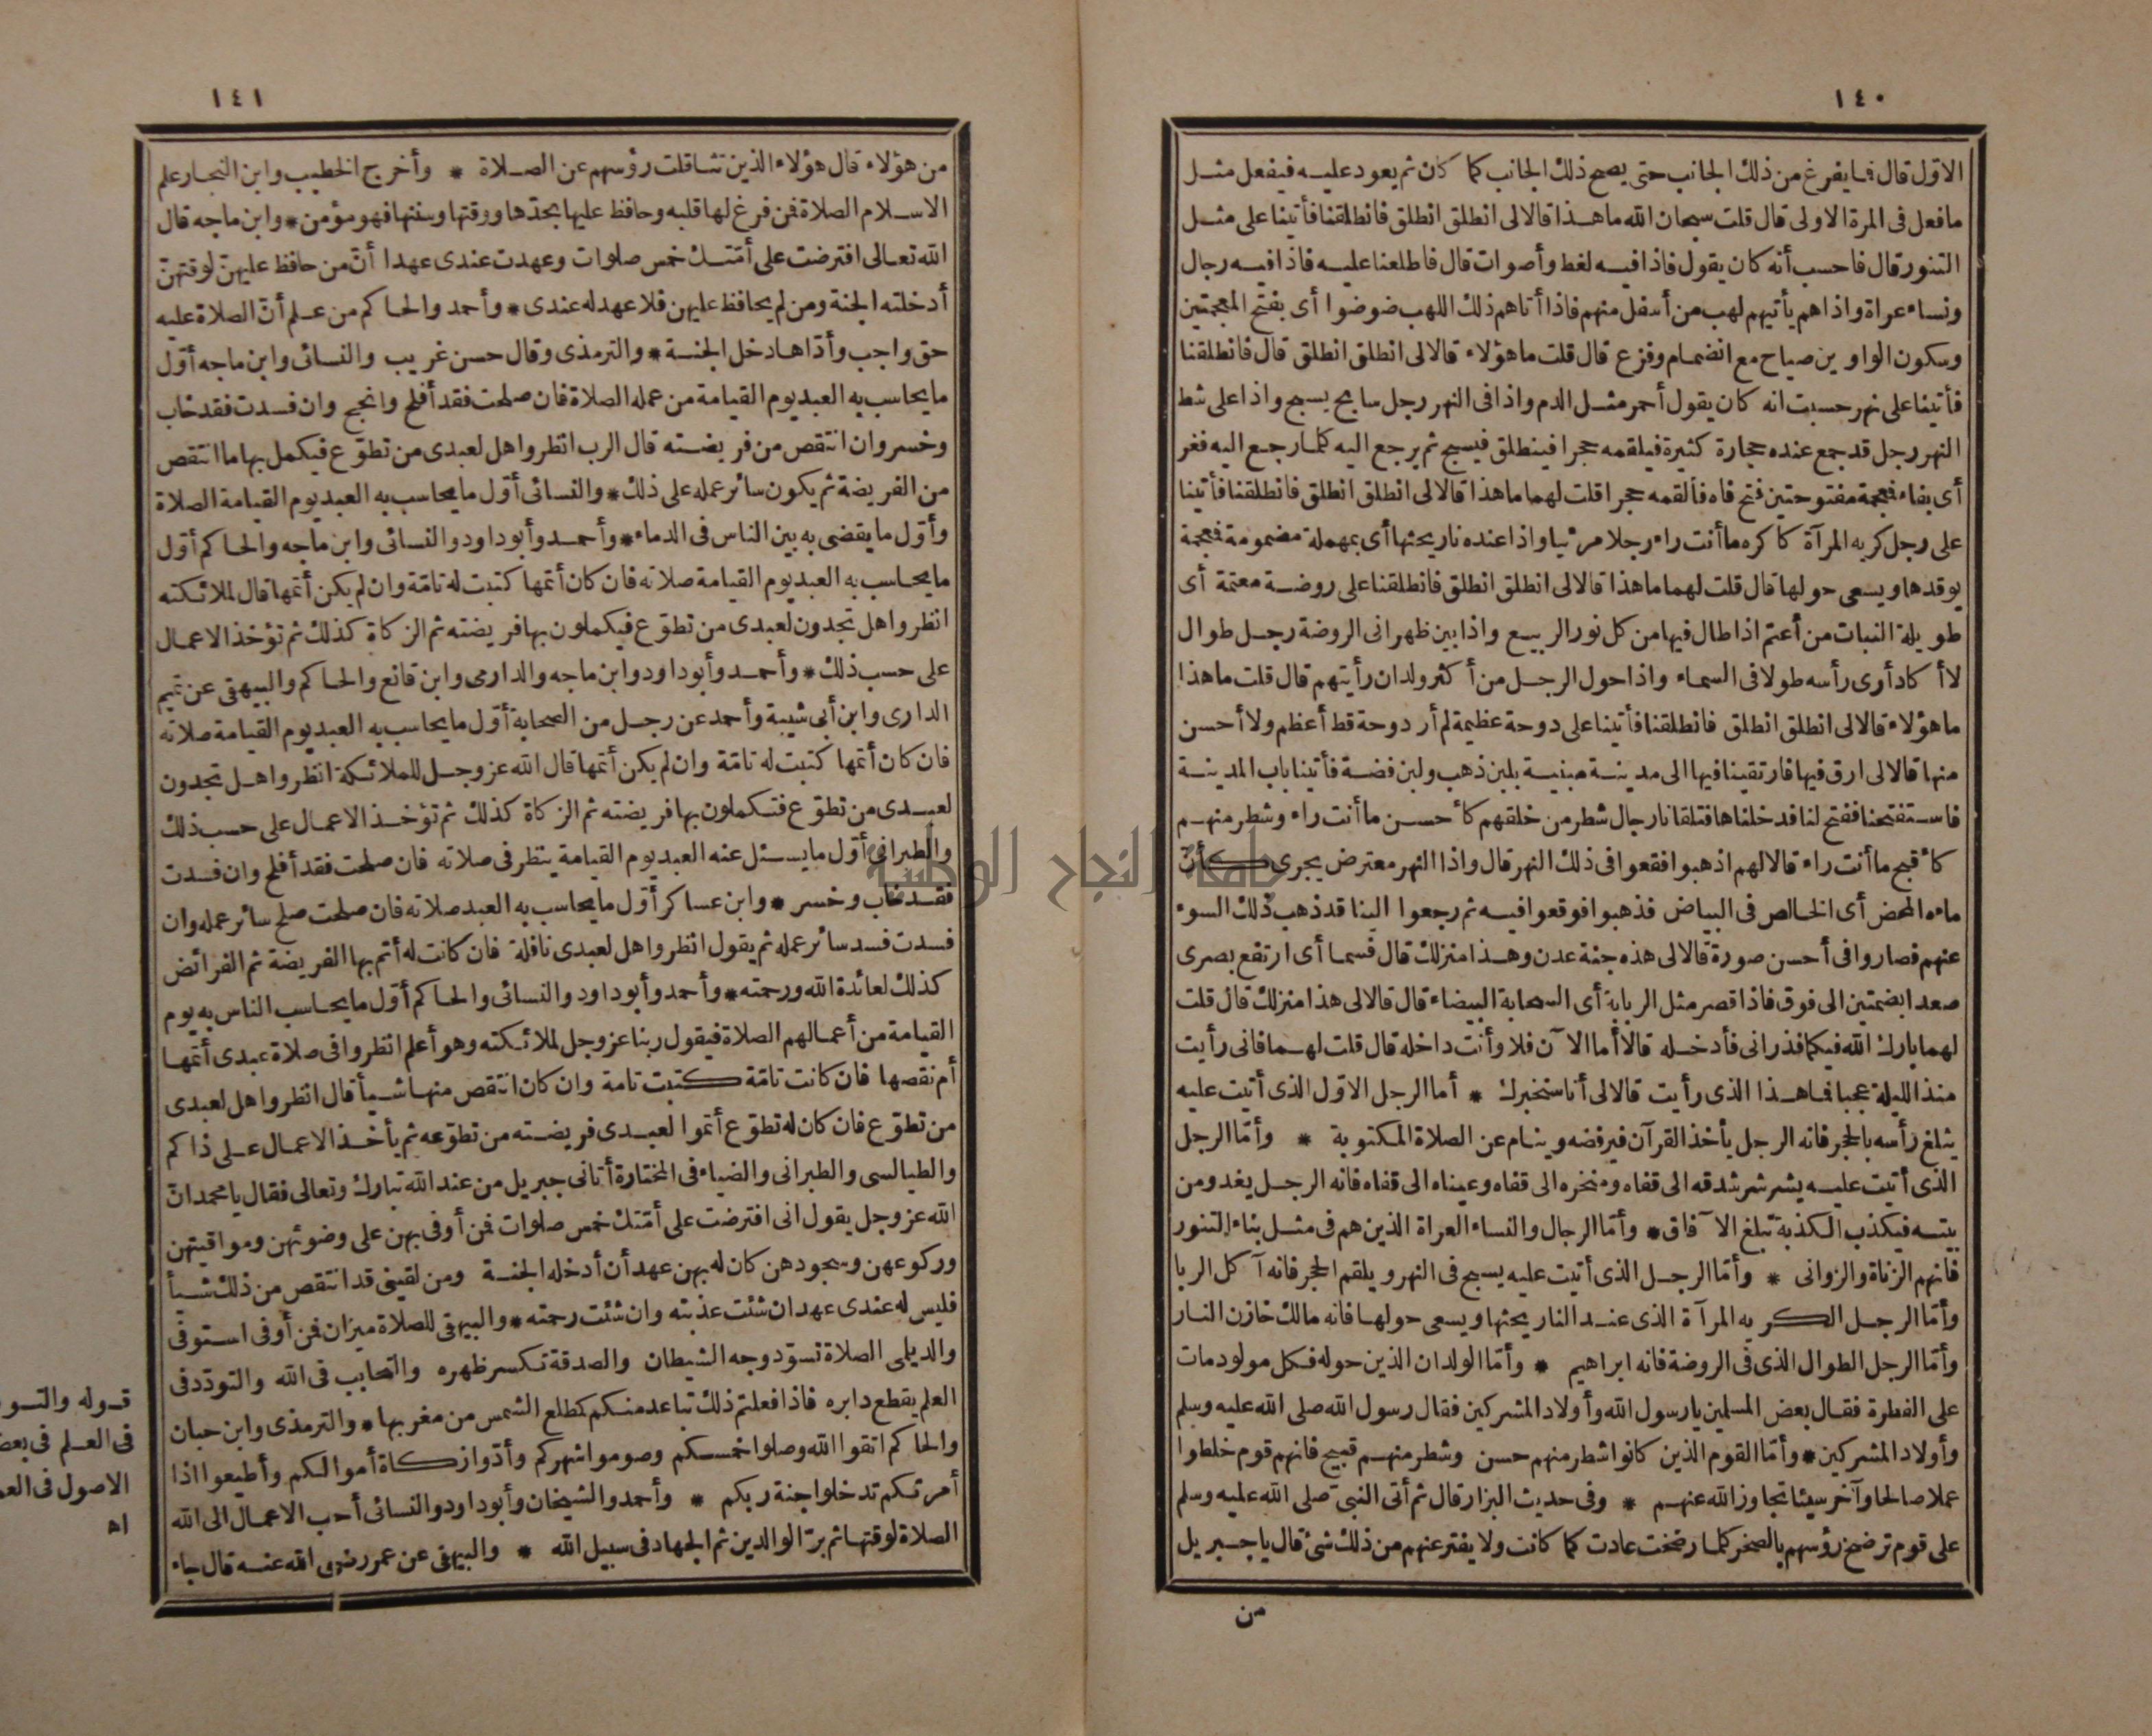 ١٤٠
الاوّل قال فما يفرغ من ذلك الجانب حتى يصح ذلك الجانب كما كان ثم يعود عليه فيفعل مثل
ما فعل فى المرة الاولى قال قلت سبحان الله ما هذا قالا لى انطلق انطلق فانطلقنا فأتينا على مثل
التنور قال فاحسب أنه كان يقول فاذا فيه لغط وأصوات قال فاطلعنا عليه فاذا فيه رجال
ونساء عراة واذا هم يأتيهم لهب من أسفل منهم فاذا أتاهم ذلك اللهب ضوضوا أى بفتح المعجمتين
وسكون الواوين صياح مع انضمام وفزع قال قلت ما هؤلاء قالا لى انطلق انطلق قال فانطلقنا
فأتينا على نهر حسبت انه كان يقول أحمر مثل الدم واذا فى النهر رجل سابح يسبح واذا على شط
النهر رجل قد جمع عنده حجارة كثيرة فيلقمه حجرا فينطلق فيسبح ثم يرجع اليه كلما رجع اليه فغر
أى بفاء فمعجمة مفتوحتين فتح فاه فألقمه حجرا قلت لهما ما هذا قالا لى انطلق انطلق فانطلقنا فأتينا
على رجل كريه المرآة كاكره ما أنت راء رجلا مرئيا واذا عنده نار يحشها أى بمهملة مضمومة فمعجمة
يوقدها ويسعى حولها قال قلت لهما ما هذا قالا لى انطلق انطلق فانطلقنا على روضة معتمة أى
طويلة النبات من أعتم اذا طال فيها من كل نور الربيع واذا بين ظهرانى الروضة رجل طوال
لا أكاد أرى رأسه طولا فى السماء واذا حول الرجل من أكثر ولدان رأيتهم قال قلت ما هذا
ما هؤلاء قالا لى انطلق انطلق فانطلقنا فأتينا على دوحة عظيمة لم أر دوحة قط أعظم ولا أحسن
منها قالا لى ارق فيها فارتقينا فيها الى مدينة مبنية بلبن ذهب ولبن فضة فأتينا باب المدينة
فاستفتحنا ففتح لنا فدخلناها فتلقانا رجال شطر من خلقهم كأحسن ما أنت راء وشطر منهم
كأقبح ما أنت راء قالا لهم اذهبوا فقعوا فى ذلك النهر قال واذا النهر معترض يجرى كأنّ
ماءه المحض أى الخالص فى البياض فذهبوا فوقعوا فيه ثم رجعوا الينا قد ذهب ذلك السوء
عنهم فصاروا فى أحسن صورة قالا لى هذه جنة عدن وهذا منزلك قال فسما أى ارتفع بصرى
صعدا بضمتين الى فوق فاذا قصر مثل الربابة أى السحابة البيضاء قال قالا لى هذا منزلك قال قلت
لهما بارك الله فيكما فذرانى فأدخله قالا أما الآن فلا وأنت داخله قال قلت لهما فانى رأيت
منذ الليلة عجبا فما هذا الذى رأيت قالا لى أنا سنخبرك * أما الرجل الاوّل الذى أتيت عليه
يثلغ رأسه بالحجر فانه الرجل يأخذ القرآن فيرفضه وينام عن الصلاة المكتوبة * وأمّا الرجل
الذى أتيت عليه يشرشر شدقه الى قفاه ومنخره الى قفاه وعيناه الى قفاه فانه الرجل يغدو من
بيته فيكذب الكذبة تبلغ الآفاق * وأمّا الرجال والنساء العراة الذين هم فى مثل بناء التنور
فانهم الزناة والزوانى * وأمّا الرجل الذى أتيت عليه يسبح فى النهر ويلقم الحجر فانه آكل الربا
وأمّا الرجل الكريه المرآة الذى عند النار يحشها ويسعى حولها فانه مالك خازن النار
وأمّا الرجل الطوال الذى فى الروضة فانه ابراهيم * وأمّا الولدان الذين حوله فكل مولود مات
على الفطرة فقال بعض المسلمين يا رسول الله وأولاد المشركين فقال رسول الله صلى الله عليه وسلم
وأولاد المشركين * وأمّا القوم الذين كانوا شطر منهم حسن وشطر منهم قبيح فانهم قوم خلطوا
عملا صالحا وآخر سيئا تجاوز الله عنهم * وفى حديث البزار قال ثم أتى النبىّ صلى الله عليه وسلم
على قوم ترضخ رؤسهم بالصخر كلما رضخت عادت كما كانت ولا يفتر عنهم من ذلك شئ قال يا جبريل
من
١٤١
من هؤلاء قال هؤلاء الذين تثاقلت رؤسهم عن الصلاة * وأخرج الخطيب وابن النجار علم
الاسلام الصلاة فمن فرغ لها قلبه وحافظ عليها بحدّها ووقتها وسنتها فهو مؤمن * وابن ماجه قال
الله تعالى افترضت على أمّتك خمس صلوات وعهدت عندى عهدا أنّ من حافظ عليهنّ لوقتهنّ
أدخلته الجنة ومن لم يحافظ عليهن فلا عهد له عندى * وأحمد والحاكم من علم أنّ الصلاة عليه
حق واجب وأدّاها دخل الجنة * والترمذى وقال حسن غريب والنسائى وابن ماجه أوّل
ما يحاسب به العبد يوم القيامة من عمله الصلاة فان صلحت فقد أفلح وانجح وان فسدت فقد خاب
وخسر وان انتقص من فريضته قال الرب انظروا هل لعبدى من تطوّع فيكمل بها ما انتقص
من الفريضة ثم يكون سائر عمله على ذلك * والنسائى أوّل ما يحاسب به العبد يوم القيامة الصلاة
وأوّل ما يقضى به بين الناس فى الدماء * وأحمد وأبو داود والنسائى وابن ماجه والحاكم أوّل
ما يحاسب به العبد يوم القيامة صلاته فان كان أتمها كتبت له تامّة وان لم يكن أتمها قال لملائكته
انظروا هل تجدون لعبدى من تطوّع فيكملون بها فريضته ثم الزكاة كذلك ثم تؤخذ الاعمال
على حسب ذلك * وأحمد وأبو داود وابن ماجه والدارمى وابن قانع والحاكم والبيهقى عن تميم
الدارى وابن أبى شيبة وأحمد عن رجل من الصحابة أوّل ما يحاسب به العبد يوم القيامة صلاته
فان كان أتمها كتبت له تامّة وان لم يكن أتمها قال الله عز وجل للملائكة انظروا هل تجدون
لعبدى من تطوّع فتكملون بها فريضته ثم الزكاة كذلك ثم تؤخذ الاعمال على حسب ذلك
والطبرانى أوّل ما يسئل عنه العبد يوم القيامة ينظر فى صلاته فان صلحت فقد أفلح وان فسدت
فقد خاب وخسر * وابن عساكر أوّل ما يحاسب به العبد صلاته فان صلحت صلح سائر عمله وان
فسدت فسد سائر عمله ثم يقول انظروا هل لعبدى نافلة فان كانت له أتم بها الفريضة ثم الفرائض
كذلك لعائدة الله ورحمته * وأحمد وأبو داود والنسائى والحاكم أوّل ما يحاسب الناس به يوم
القيامة من أعمالهم الصلاة فيقول ربنا عز وجل لملائكته وهو أعلم انظروا فى صلاة عبدى أتمها
أم نقصها فان كانت تامّة كتبت تامة وان كان انتقص منها شيأ قال انظروا هل لعبدى
من تطوّع فان كان له تطوّع أتموا لعبدى فريضته من تطوّعه ثم يأخذ الاعمال على ذاكم
والطيالسى والطبرانى والضياء فى المختارة أتانى جبريل من عند الله تبارك وتعالى فقال يا محمد انّ
الله عز وجل يقول انى افترضت على أمّتك خمس صلوات فمن أوفى بهن على وضوئهن ومواقيتهن
وركوعهن وسجودهن كان له بهن عهد أن أدخله الجنة ومن لقينى قد انتقص من ذلك شيأ
فليس له عندى عهد ان شئت عذبته وان شئت رحمته * والبيهقى للصلاة ميزان فمن أوفى استوفى
والديلمى الصلاة تسوّد وجه الشيطان والصدقة تكسر ظهره والتحابب فى الله والتودّد فى
العلم يقطع دابره فاذا فعلتم ذلك تباعد منكم كمطلع الشمس من مغربها * والترمذى وابن حبان
والحاكم اتقوا الله وصلوا خمسكم وصوموا شهركم وأدّوا زكاة أموالكم وأطيعوا اذا
أمرتكم تدخلوا جنة ربكم * وأحمد والشيخان وأبو داود والنسائى أحب الاعمال الى الله
الصلاة لوقتها ثم برّ الوالدين ثم الجهاد فى سبيل الله * والبيهقى عن عمر رضى الله عنه قال جاء
قوله والتو
فى العلم فى بعض
الاصول فى العم
اه
جامعة النجاح الوطنية